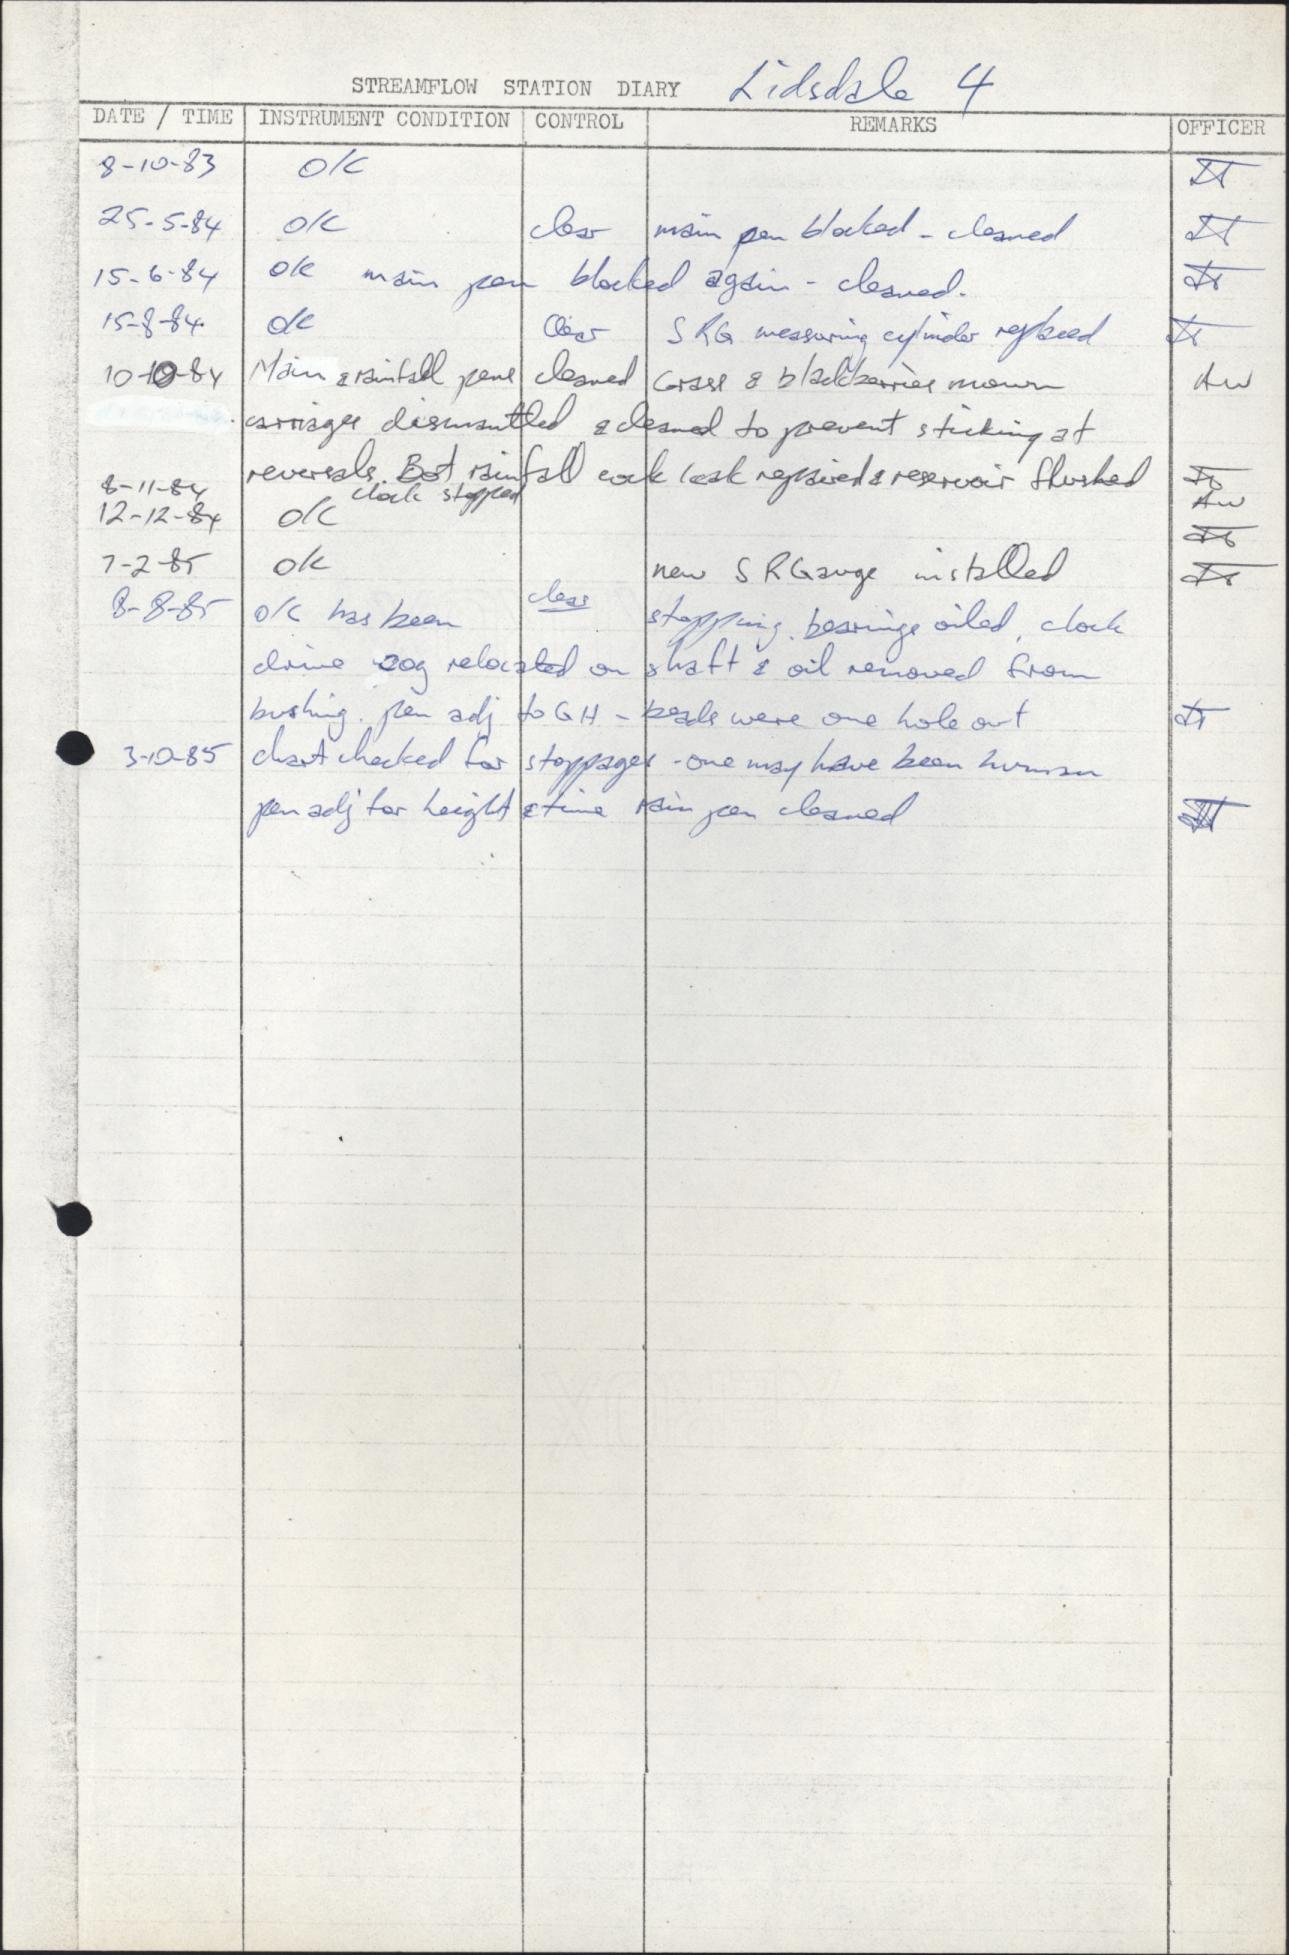 STREAMFLOW STATION DIARY Lidsdale 4
DATE / TIME INSTRUMENT CONDITION CONTROL REMARKS OFFICER
8-10-83 OK
25-5-84 OK clear main pen blocked - cleaned
15-6-84 OK main pen blocked again - cleaned.
15-8-84 OK Clear SRG measuring cylinder replaced
10-10-84 Main & rainfall pens cleaned Grass & blackberries mown AW
carriages dismantled & cleaned to prevent sticking at
reversals. Bot rainfall cock leak repaired & reservoir flushed
8-11-84 clock stopped AW
12-12-84 OK
7-2-85 OK new SRGauge installed
8-8-85 OK has been clear stopping. bearings oiled, clock
drive cog relocated on shaft & oil removed from
bushing. pen adj to GH - beads were one hole out
3-10-85 chart checked for stoppages - one may have been human
pen adj for height & time rain pen cleaned